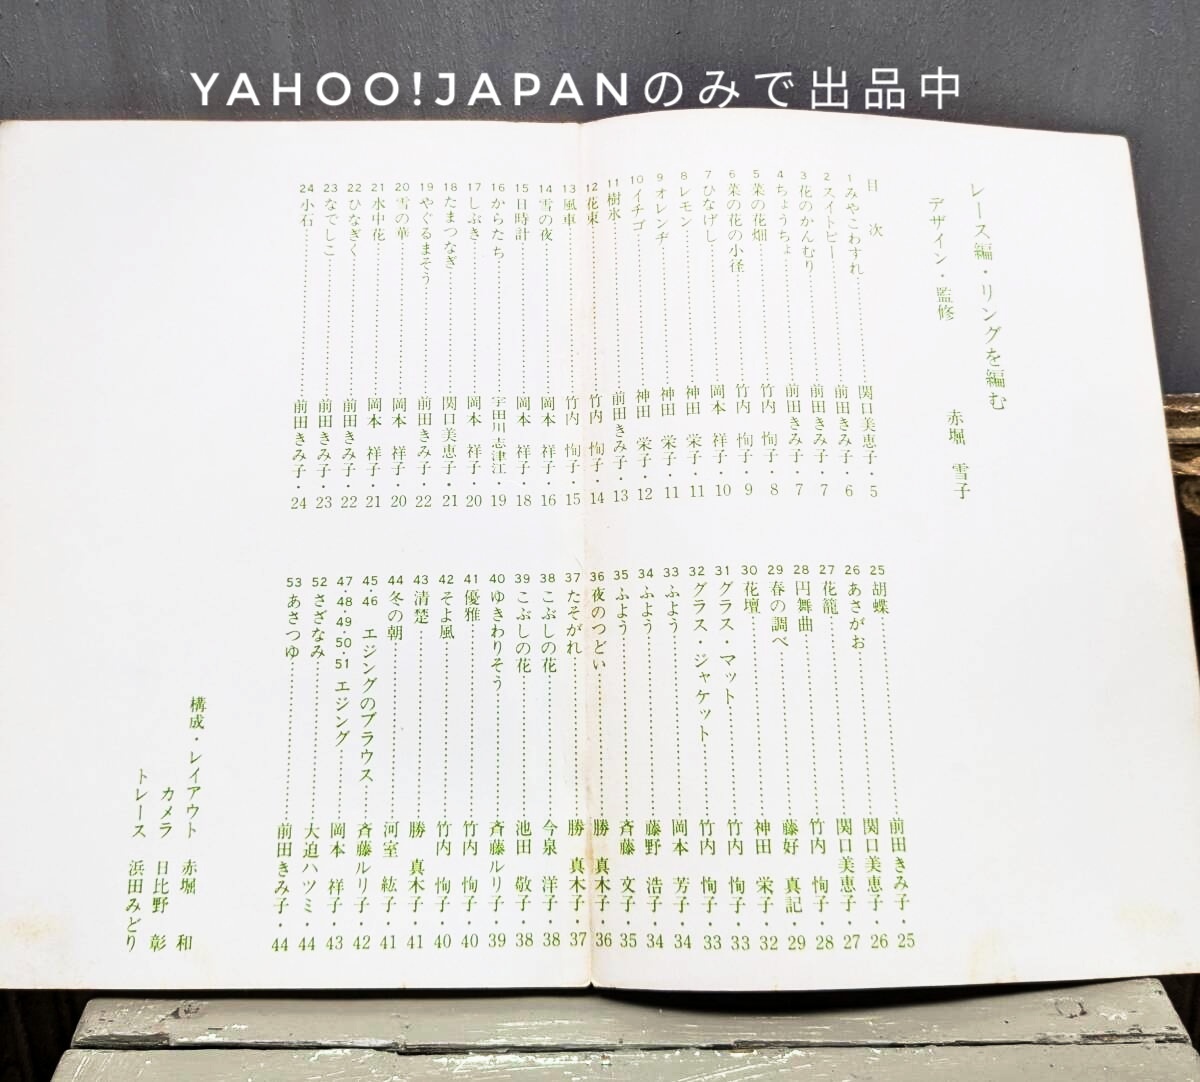 YAHOO!JAPANのみで出品中
レース編・リングを編む
デザイン・監修 赤堀 雪子
目次
1 みやこわすれ……関口美恵子・5
2 スイトピー……前田きみ子・6
3 花のかんむり……前田きみ子・7
4 ちょうちょ……前田きみ子・7
5 菜の花畑……竹内 恂子・8
6 菜の花の小径……竹内 恂子・9
7 ひなげし……岡本 祥子・10
8 レモン……神田 栄子・11
9 オレンヂ……神田 栄子・11
10 イチゴ……神田 栄子・12
11 樹氷……前田きみ子・13
12 花束……竹内 恂子・14
13 風車……竹内 恂子・15
14 雪の夜……岡本 祥子・16
15 日時計……岡本 祥子・18
16 からたち……宇田川志津江 19
17 しぶき……岡本 祥子・20
18 たまつなぎ……関口美恵子・21
19 やぐるまそう……前田きみ子・22
20 雪の華……岡本 祥子・20
21 水中花……岡本 祥子・21
22 ひなぎく……前田きみ子・22
23 なでしこ……前田きみ子・23
24 小石……前田きみ子・24
25 胡蝶……前田きみ子・25
26 あさがお……関口美恵子・26
27 花籠……関口美恵子・27
28 円舞曲……竹内 恂子・28
29 春の調べ……藤好 真記・29
30 花壇……神田 栄子・32
31 グラス・マット……竹内 恂子・33
32 グラス・ジャケット……竹内 恂子・33
33 ふよう……岡本 芳子・34
34 ふよう……藤野 浩子・34
35 ふよう……斉藤 文子・35
36 夜のつどい……勝 真木子・36
37 たそがれ……勝 真木子・37
38 こぶしの花……今泉 洋子・38
39 こぶしの花……池田 敬子・38
40 ゆきわりそう……斉藤ルリ子・39
41 優雅……竹内 恂子・40
42 そよ風……竹内 恂子・40
43 清楚……勝 真木子・41
44 冬の朝……河室 紘子・41
45・46 エジングのブラウス……斉藤ルリ子・42
47・48・49・50・51 エジング……岡本 祥子・43
52 さざなみ……大迫ハツミ・44
53 あさつゆ……前田きみ子・44
構成・レイアウト 赤堀 和
カメラ 日比野 彰
トレース 浜田みどり